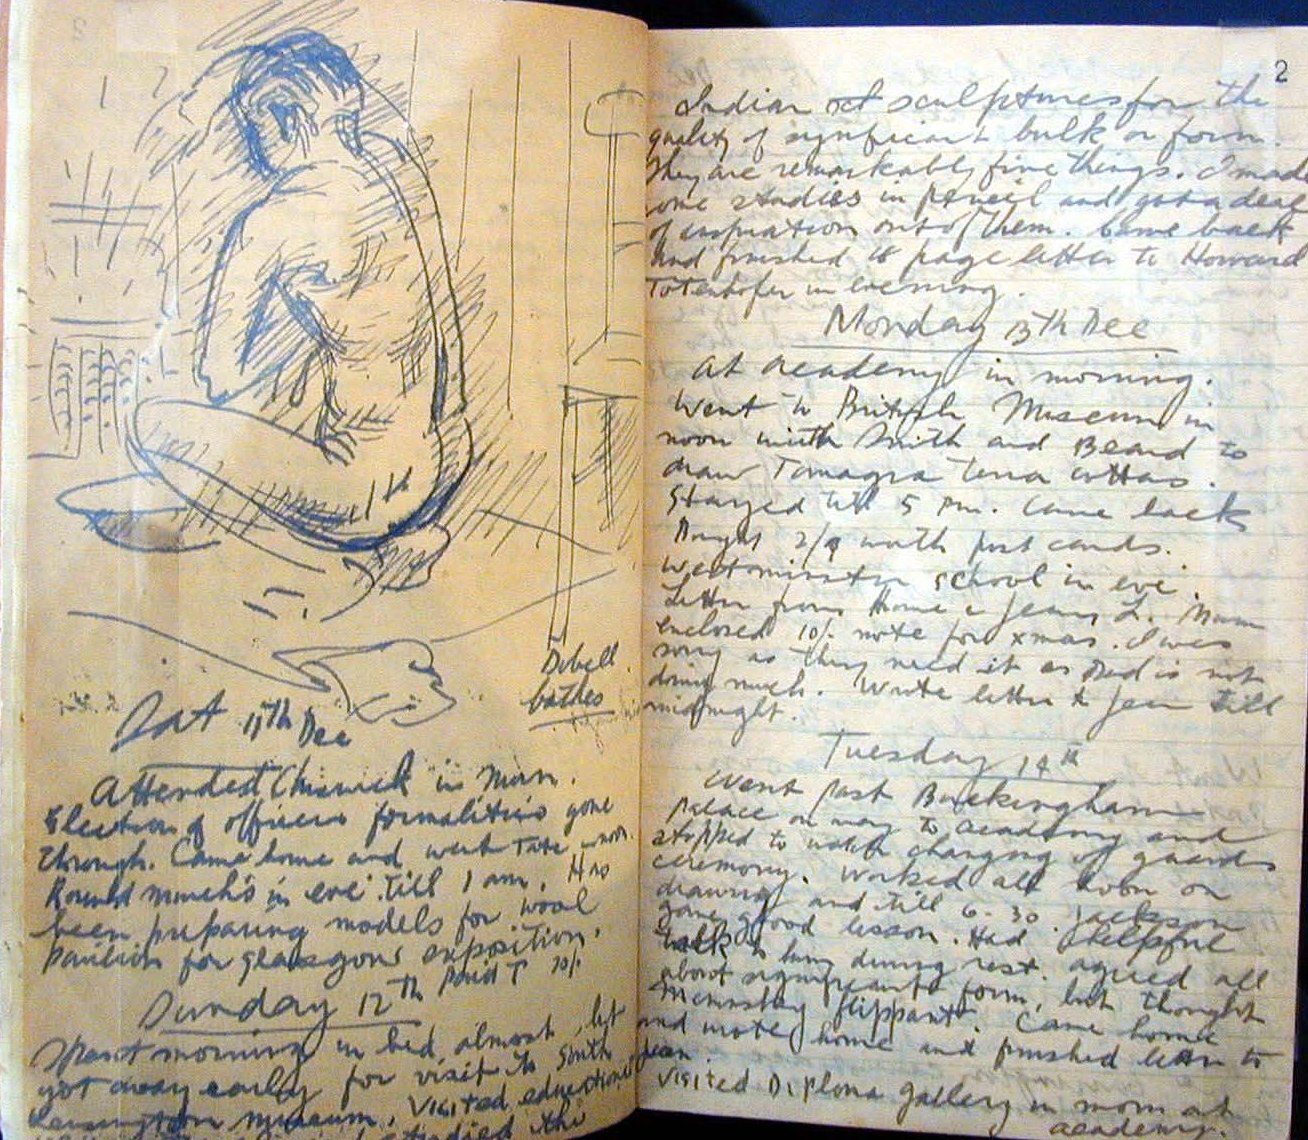 Dobell
bathes
Sat 11th Dec
Attended Chiswick in Morn.
Election of officers formalities gone
through. Came home and went Tate noon.
Round Minch's in eve. till 1 am. Has
been preparing models for wool
pavilion for Glasgow exposition.
Sunday 12th Paid T 10/.
Spent morning in bed almost, but
got away early for visit to South
Kensington Museum. Visited educational
studied the
2
Indian sculptures for the
quality of significant bulk or form.
They are remarkably fine things. I made
some studies in pencil and got a deal
of inspiration out of them. Came back
And finished 18 page letter to Howard
Totenhofer in evening.
Monday 13th Dec
At academy in morning.
Went to British Museum in
noon with Smith and Beard to
draw Tanagra Terra cottas.
Stayed till 5 pm. Came back
Bought 2/ worth post cards.
Westminster school in eve.
Letter from Home & Jenny L. Mum
enclosed 10/. note for xmas. I was
sorry as they need it as Dad is not
doing much. Write letter to Jean till
midnight.
Tuesday 14th
Went past Buckingham
palace on way to academy and
stopped to watch changing of guards
ceremony. Worked all noon on
drawing and till 6-30. Jackson
gave good lesson. Had helpful
talk to him during rest. agreed all
about significant form, but thought
flippant. Came home
and wrote home and finished letter to
Jean.
Visited Diploma gallery in morn at
academy.